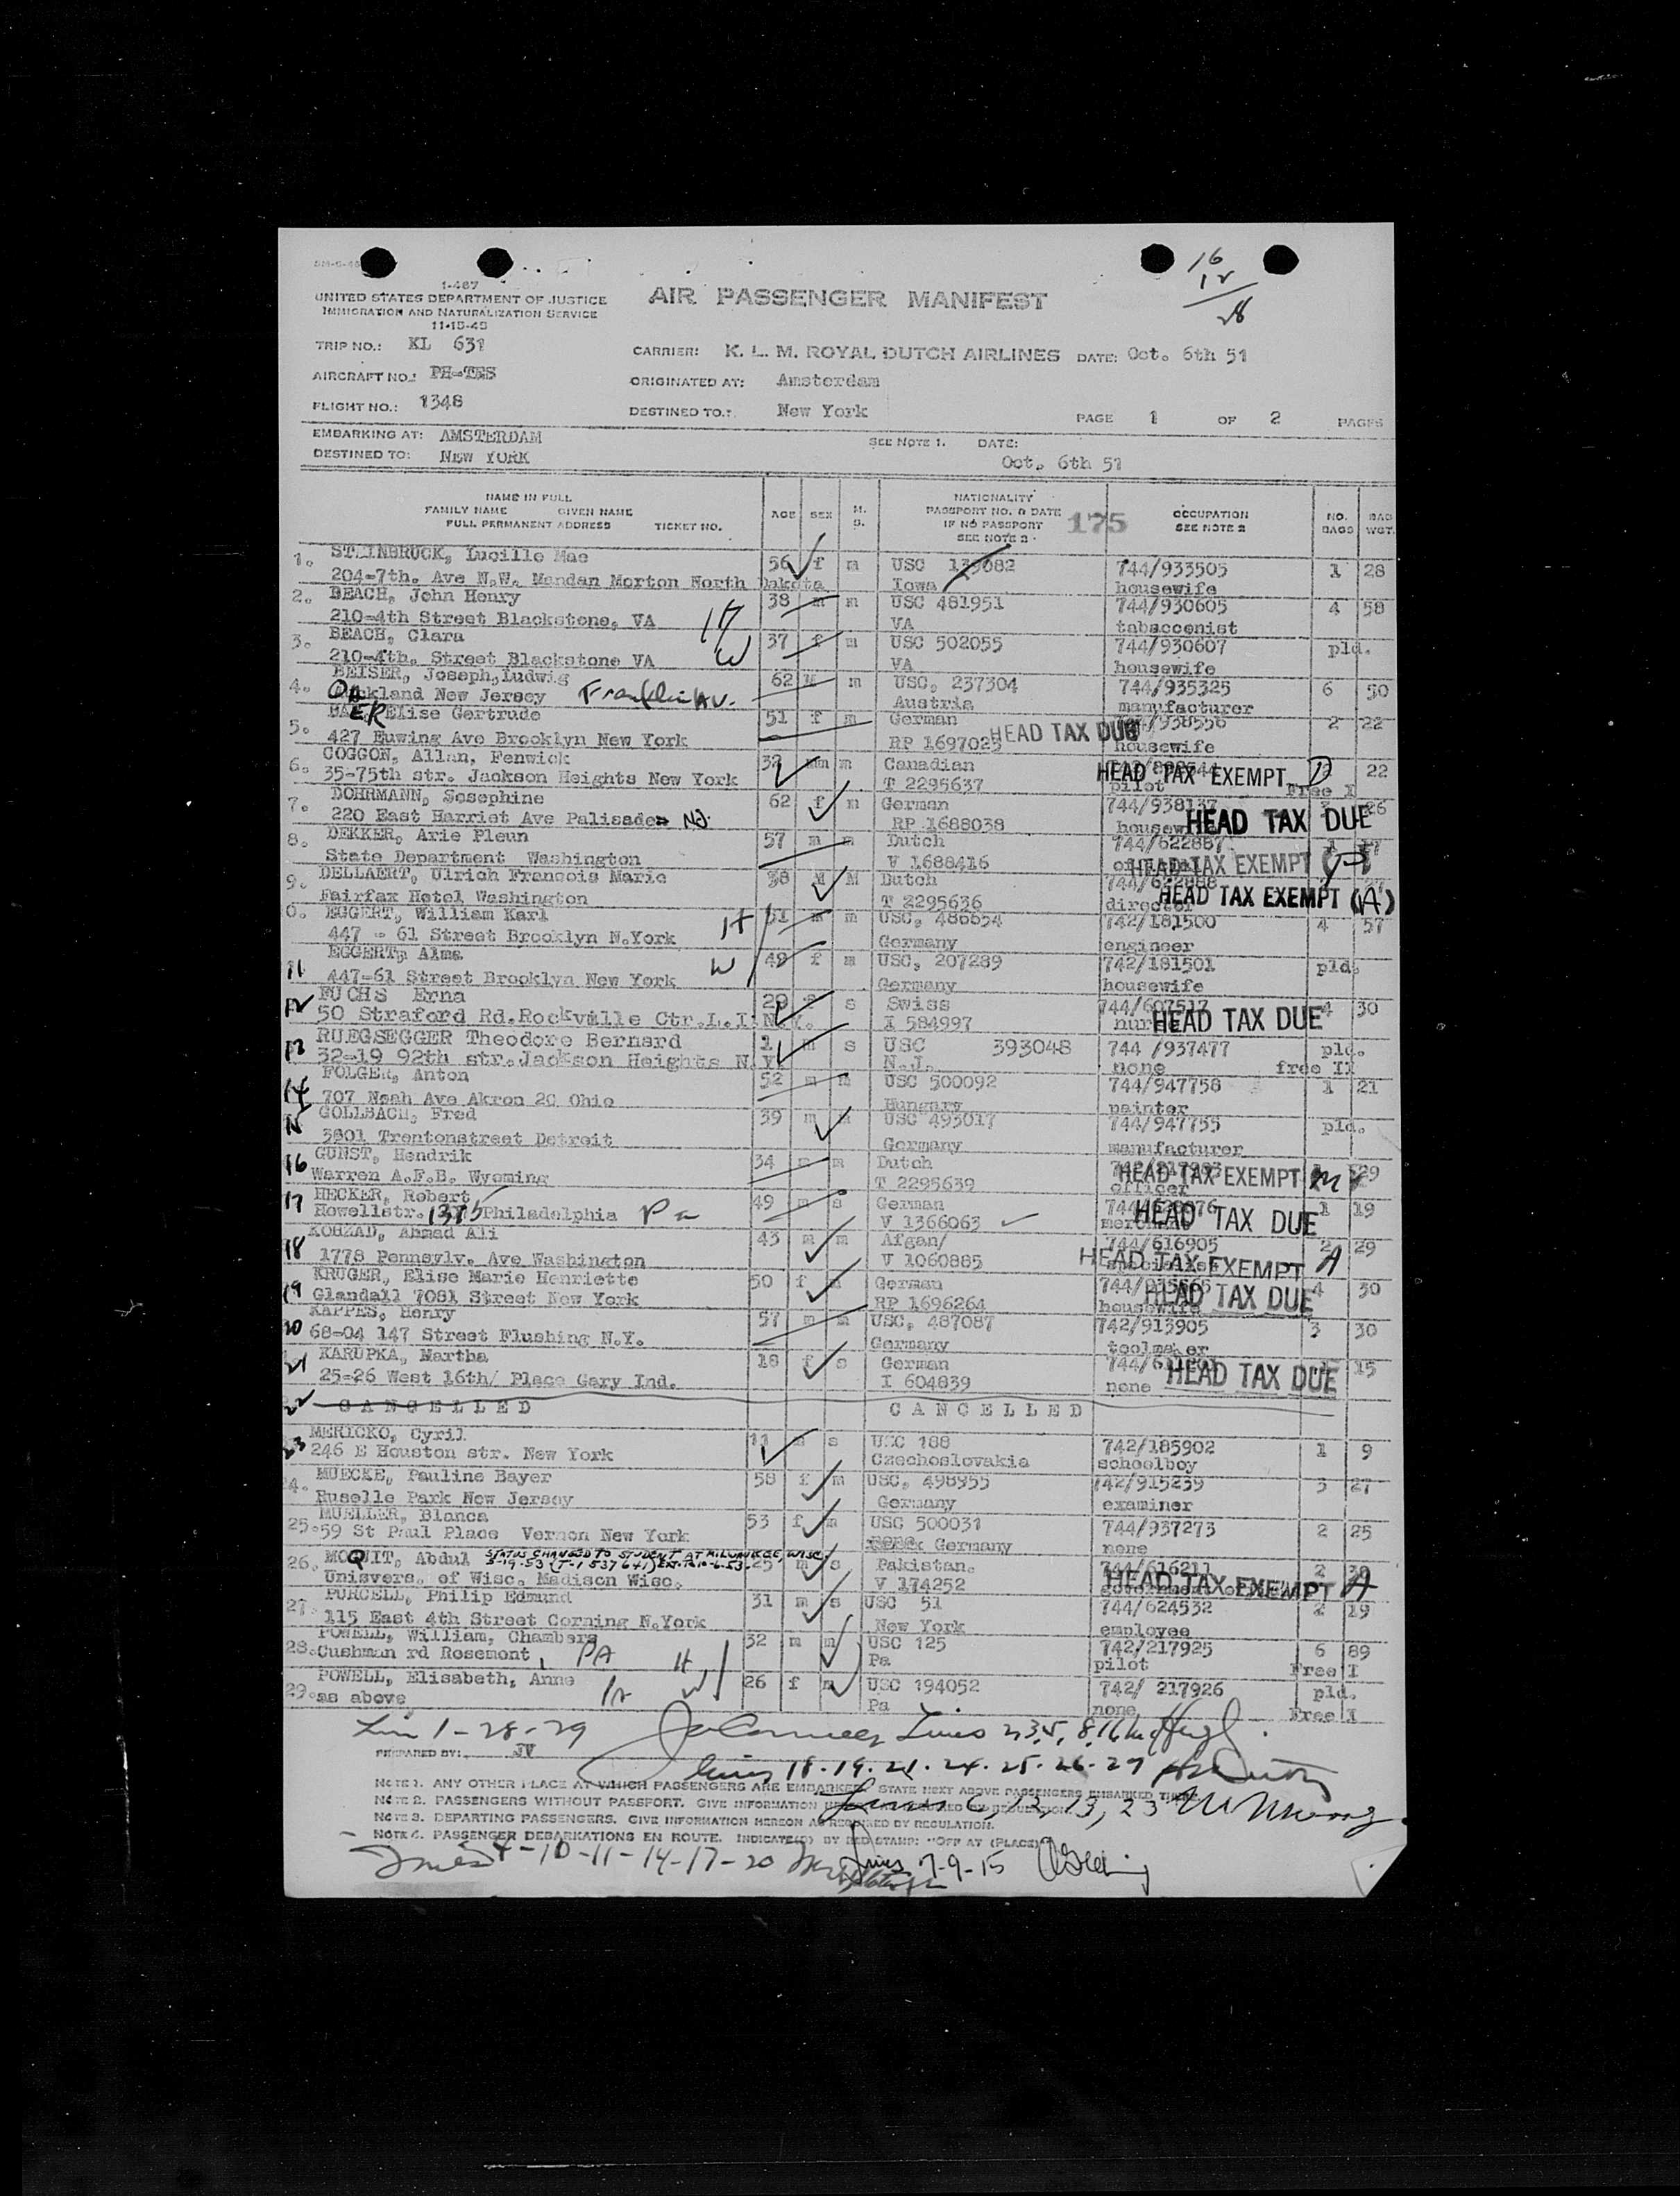 I-487
UNITED STATES DEPARTMENT OF JUSTICE
IMMIGRATION AND NATURALIZATION SERVICE
11-15-45
AIR PASSENGER MANIFEST
16
12
28
TRIP NO.: KL 631
CARRIER: K. L. M. ROYAL DUTCH AIRLINES DATE: Oct. 6th 51
AIRCRAFT NO.: PH-TES
ORIGINATED AT: Amsterdam
FLIGHT NO.: 1348
DESTINED TO.: New York
PAGE 1 OF 2 PAGES
EMBARKING AT: AMSTERDAM
SEE NOTE 1. DATE:
DESTINED TO: NEW YORK
Oct. 6th 51
NAME IN FULL
FAMILY NAME GIVEN NAME
FULL PERMANENT ADDRESS TICKET NO.
AGE SEX M. S.
NATIONALITY
PASSPORT NO. & DATE
IF NO PASSPORT
SEE NOTE 2
175
OCCUPATION
SEE NOTE 2
NO. BAGS BAG WGT.
1. STEINBRUCK, Lucille Mae 56 f m USC 744/933505 1 28
204-7th. Ave N.W. Mandan Morton North Dakota Iowa housewife
2. BEACH, John Henry 38 m m USC 481951 744/930605 4 58
210-4th Street Blackstone, VA H VA tabacconist
3. BEACH, Clara 37 f m USC 502055 744/930607 pld.
210-4th. Street Blackstone VA W VA housewife
4. BEISER, Joseph, Ludwig 62 M m USC, 237304 744/935325 6 50
Oakland New Jersey Franklin Av. Austria manufacturer
5. BAER Elise Gertrude 51 f m German 2 22
427 Euwing Ave Brooklyn New York RP 1697025 HEAD TAX DUE housewife
6. COGGON, Allan, Fenwick 32 m m Canadian 22
35-75th str. Jackson Heights New York T 2295637 HEAD TAX EXEMPT D pilot Free I
7. DOHRMANN, Sosephine 62 f m German 744/938137 26
220 East Harriet Ave Palisades NJ. RP 1688038 HEAD TAX DUE
8. DEKKER, Arie Pleun 57 m m Dutch 744/622887
State Department Washington V 1688416 HEAD TAX EXEMPT
9. DELLAERT, Ulrich Francois Marie 38 M M Dutch
Fairfax Hotel Washington T 2295636 director HEAD TAX EXEMPT (A)
0. EGGERT, William Karl 51 m m USC, 486654 742/181500 4 57
447 - 61 Street Brooklyn N.York H Germany engineer
11 EGGERT, Alma 49 f m USC, 207289 742/181501 pld.
447-61 Street Brooklyn New York W Germany housewife
12 FUCHS Erna 29 f s Swiss 744/607517 4 30
50 Straford Rd.Rockville Ctr.L.I N.Y. I 584997 HEAD TAX DUE
13 RUEGSEGGER Theodore Bernard 1 m s USC 393048 744 /937477 pld.
32-19 92th str.Jackson Heights N.Y. N.J. none free II
14 FOLGER, Anton 52 m m USC 500092 744/947758 1 21
707 Noah Ave Akron 20 Ohio Hungary painter
15 GOLLBACH, Fred 39 m m USC 493017 744/947755 pld.
3801 Trentonstreet Detroit Germany manufacturer
16 GUNST, Hendrik 34 m m Dutch 29
Warren A.F.B. Wyoming T 2295639 officer HEAD TAX EXEMPT
17 HECKER, Robert 49 m s German 1 19
Howellstr. 1315 Philadelphia Pa V 1366063 HEAD TAX DUE
18 KOHZAD, Ahmad Ali 43 m m Afgan/ 744/616905 2 29
1778 Pennsylv. Ave Washington V 1060885 HEAD TAX EXEMPT A
19 KRUGER, Elise Marie Henriette 50 f m German 4 30
Glandall 7081 Street New York RP 1696264 housewife HEAD TAX DUE
20 KAPPES, Henry 57 m m USC, 487087 742/913905 3 30
68-04 147 Street Flushing N.Y. Germany toolmaker
21 KARUPKA, Martha 18 f s German 15
25-26 West 16th/ Place Gary Ind. I 604839 none HEAD TAX DUE
22 CANCELLED CANCELLED
23 MERICKO, Cyril 11 m s USC 188 742/185902 1 9
246 E Houston str. New York Czechoslovakia schoolboy
24. MUECKE, Pauline Bayer 58 f m USC, 498955 742/915239 3 27
Ruselle Park New Jersey Germany examiner
25. MUELLER, Blanca 53 f m USC 500031 744/937273 2 25
59 St Paul Place Vernon New York Germany none
26. MOQUIT, Abdul STATUS CHANGED TO STUDENT AT MILWAUKEE, WISC 25 m s Pakistan. 744/616211 2 38
Unisvers. of Wisc. Madison Wisc. V 174252 HEAD TAX EXEMPT A
27. PURCELL, Philip Edmund 31 m s USC 51 744/624532 2 19
115 East 4th Street Corning N.York New York employee
28. POWELL, William, Chambers 32 m m USC 125 742/217925 6 89
Cushman rd Rosemont, PA H Pa pilot Free I
29. POWELL, Elisabeth, Anne 26 f m USC 194052 742/ 217926 pld.
as above W Pa none Free I
Lin 1-28-29
PREPARED BY: JV
Lines 18-19-21-24-25-26-27
NOTE 1. ANY OTHER PLACE AT WHICH PASSENGERS ARE EMBARKED, STATE NEXT ABOVE PASSENGERS EMBARKED THERE.
NOTE 2. PASSENGERS WITHOUT PASSPORT. GIVE INFORMATION
Lines 6, 12, 13, 23
NOTE 3. DEPARTING PASSENGERS. GIVE INFORMATION HEREON AS REQUIRED BY REGULATION.
NOTE 4. PASSENGER DEBARKATIONS EN ROUTE. INDICATE(D) BY RED STAMP: "OFF AT (PLACE)"
Lines 4-10-11-14-17-20
Lines 7-9-15